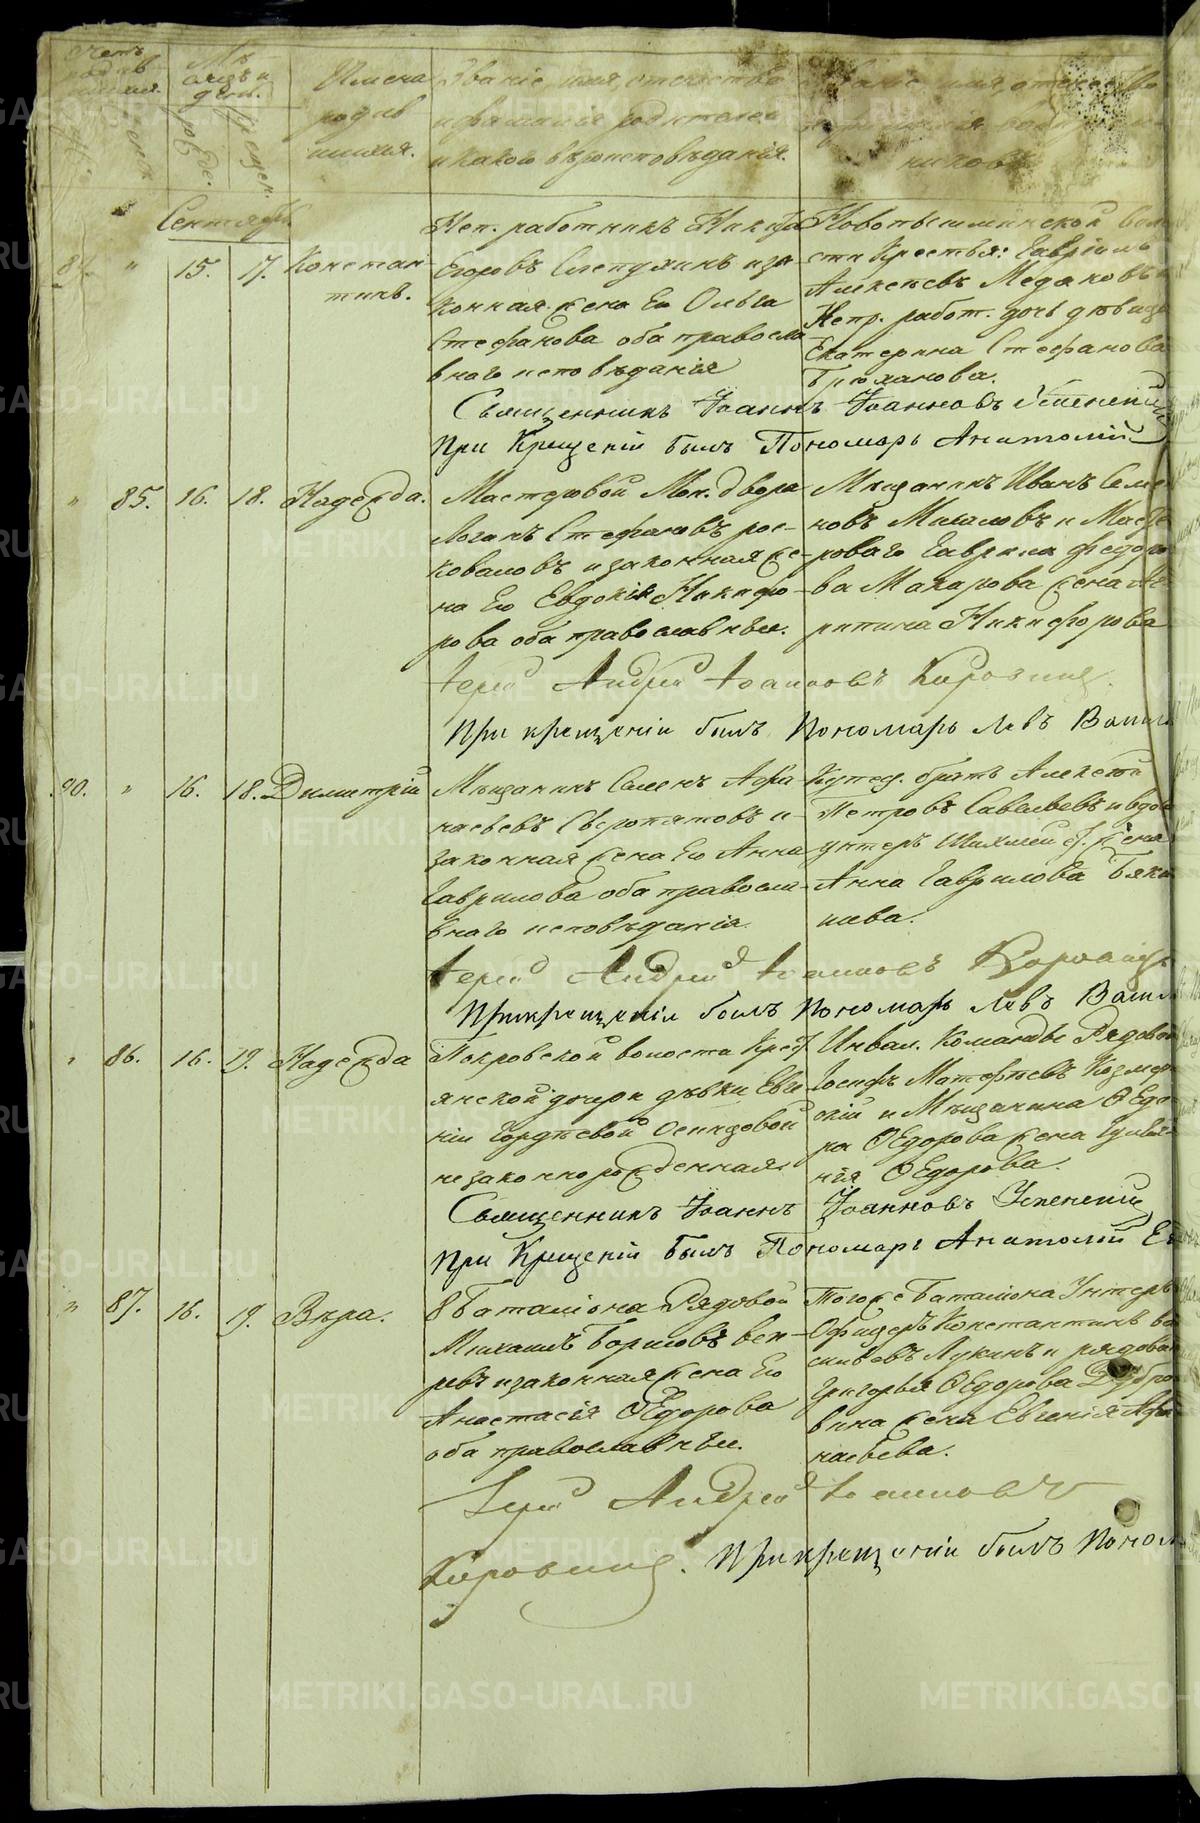 Счетъ родив шихся.
Мѣ сяцъ и день.
Имена родив шихся.
Званіе, имя, отчество и фамилія родителей и какого вѣроисповѣданія.
Званіе, имя, отчество
никовъ
Сентябрь
89. " 15. 17. Констан тинъ.
Неп. работникъ Никита
Егоровъ Слепухинъ и за
конная жена Его Ольга
Стефанова оба правосла
внаго исповѣданія
Новопышминской воло
сти Крестья: Гавріилъ
Алексѣевъ Медяковъ
Непр. работ. дочь дѣвица
Екатерина Стефанова
Брюханова.
Священникъ Іоаннъ Іоанновъ Успенскій
При Крещеніи былъ Пономарь Анатолій
" 85. 16. 18. Надежда.
Мастеровой Мон. двора
Логинъ Стефановъ рос-
коваловъ и законная же-
на Его Евдокія Никифо-
рова оба православные.
Мѣщанинъ Иванъ Семе
новъ Михаловъ и Масте
роваго Гаврила Федоро
ва Макарова жена Аг
рипина Никифорова
Іерей Андрей Іоанновъ Коровинъ.
При крещеніи былъ Пономарь Левъ Васил
90. " 16. 18. Димитрій
Мѣщанинъ Семенъ Афа-
насьевъ Сыропятовъ и
законная жена Его Анна
Гаврилова оба правосла-
внаго исповѣданія.
Купец. братъ Алексѣй
Петровъ Савельевъ и вдов
унтеръ Шихмейст. жена
Анна Гаврилова Бяки
шева.
Іерей Андрей Іоанновъ Коровинъ
При крещеніи былъ Пономарь Левъ Васил
" 86. 16. 19. Надежда
Покровской волости Крест
янской дочери дѣвки Евге
ніи Гордѣевой Осинцовой
незаконнорожденная.
Инвал. Команды Рядовой
Іосифъ Матфѣевъ Козмер
скій и Мѣщанина Ѳедо
ра Ѳедорова жена
нія Ѳедорова.
Священникъ Іоаннъ Іоанновъ Успенскій
При Крещеніи былъ Пономарь Анатолій
" 87. 16. 19. Вѣра.
8 Баталіона Рядовой
Михаилъ Борисовъ веп-
ревъ и законная жена Его
Анастасія Ѳедорова
оба православные.
Тогоже Баталіона Унтеръ
Офицеръ Константинъ ва
сильевъ Лукинъ и рядова
Григорья Ѳедорова Дубро
вина жена Евгенія Афа
насьева.
Іерей Андрей Іоанновъ
Коровинъ. При крещеніи былъ Поном
METRIKI.GASO-URAL.RU